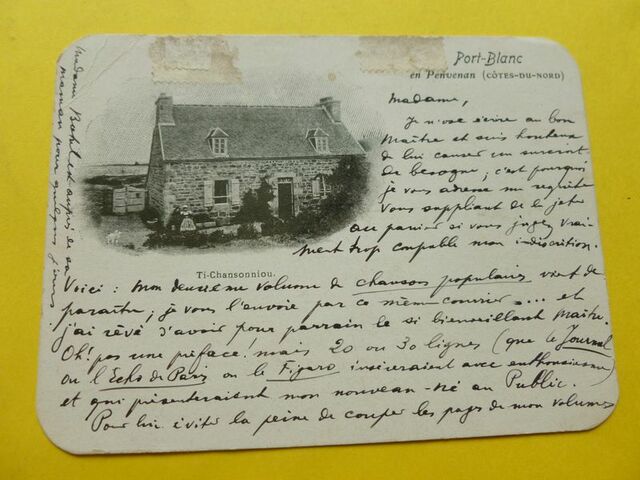 Port-Blanc
en Penvenan (CÔTES-DU-NORD)
Madame,
Je n'ose écrire au bon
Maître et suis honteux
de lui causer un surcroit
de besogne ; c'est pourquoi
je vous adresse ma requête
vous suppliant de la jeter
au panier si vous jugez vrai-
ment trop coupable mon indiscrétion.
Ti-Chansonniou.
Voici : mon deuxième volume de chansons populaires vient de
paraître ; je vous l'envoie par ce même courrier .... et
j'ai rêvé d'avoir pour parrain le si bienveillant Maître.
Oh! pas une préface! mais 20 ou 30 lignes (que le Journal
ou l'Echo de Paris ou le Figaro inséreraient avec enthousiasme)
et qui présenteraient mon nouveau-né au Public.
Pour lui éviter la peine de couper les pages de mon volume
Madame auprès de sa
maman pour quelques jours